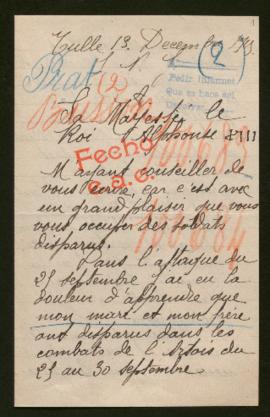 Tulle 13 Decembre
Prat
(2)
Pedir informes
Que se hace así
A
Sa Majesté le
Roi Alphonse XIII
Fecho
Mayant conseiller de
vous écrire, car c'est avec
un grand plaisir que vous
vous, occuper des soldats
disparus.
Dans l'attaque du
25 septembre ai eu la
douleur d'apprendre que
mon mari et mon frère
ont disparus dans les
combats de l'Artois du
25 au 30 septembre